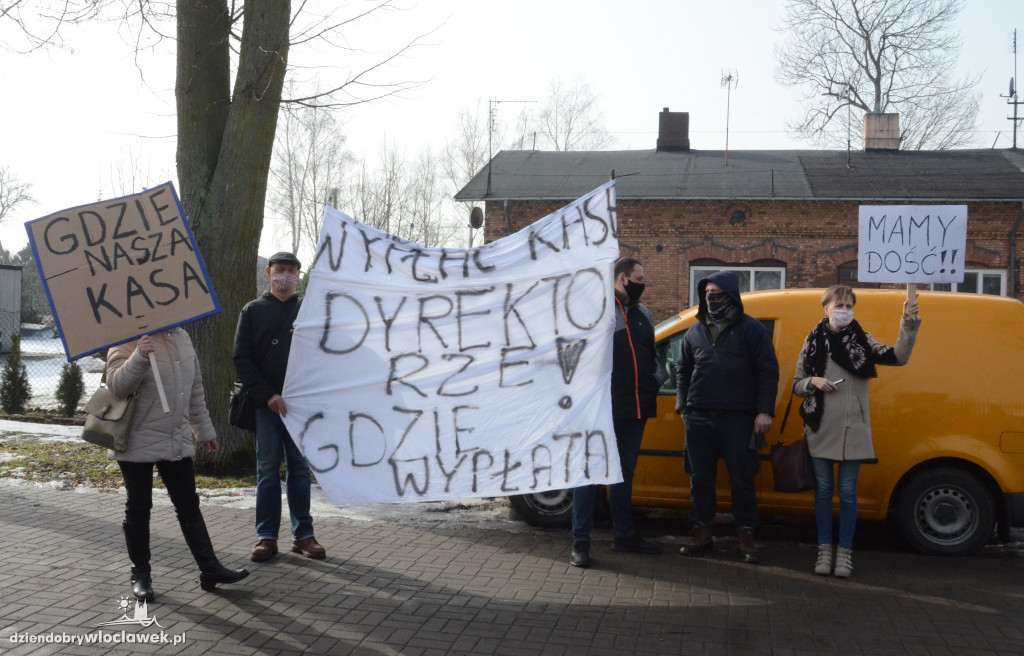 GDZIE
NASZA
KASA
WYPŁAC KASĘ
DYREKTO
RZE !
GDZIE
WYPŁATA
MAMY
DOŚĆ!!
dziendobrywloclawek.pl